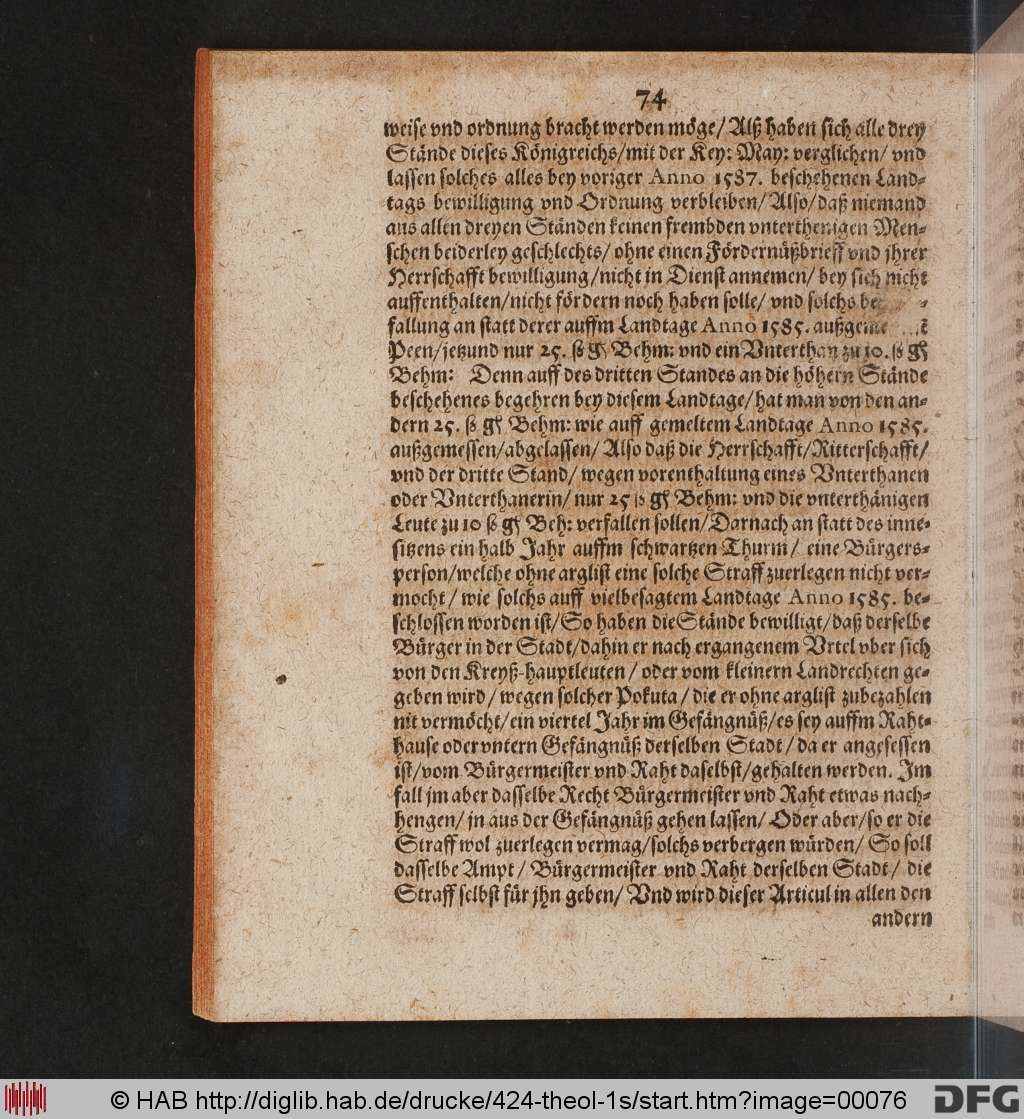 74
weise vnd ordnung bracht werden möge/ Alß haben sich alle drey
Stände dieses Königreichs/mit der Key: May: verglichen/ vnd
lassen solches alles bey voriger Anno 1587. beschehenen Land-
tags bewilligung vnd Ordnung verbleiben/ Also/ daß niemand
aus allen dreyen Ständen keinen frembden vnterthenigen Men-
schen beiderley geschlechts/ ohne einen Fördernüßbrieff vnd jhrer
Herrschafft bewilligung/nicht in Dienst annemen/ bey sich nicht
auffenthalten/nicht fördern noch haben solle/ vnd solchs
fallung an statt derer auffm Landtage Anno 1585.
Peen/jetzund nur 25. ß gꝭ Behm: vnd ein Vnterthan zu 10. ß gꝭ
Behm: Denn auff des dritten Standes an die höhern Stände
beschehenes begehren bey diesem Landtage/ hat man von den an-
dern 25. ß gꝭ Behm: wie auff gemeltem Landtage Anno 1585.
außgemessen/abgelassen/ Also daß die Herrschafft/Ritterschafft/
vnd der dritte Stand/ wegen vorenthaltung eines Vnterthanen
oder Vnterthanerin/ nur 25 ß gꝭ Behm: vnd die vnterthänigen
Leute zu 10 ß gꝭ Beh: verfallen sollen/Darnach an statt des inne-
sitzens ein halb Jahr auffm schwartzen Thurm/ eine Bürgers-
person/welche ohne arglist eine solche Straff zuerlegen nicht ver-
mocht/ wie solchs auff vielbesagtem Landtage Anno 1585. be-
schlossen worden ist/So haben die Stände bewilligt/daß derselbe
Bürger in der Stadt/dahin er nach ergangenem Vrtel vber sich
von den Kreyß-hauptleuten/ oder vom kleinern Landrechten ge-
geben wird/ wegen solcher Pokuta/ die er ohne arglist zubezahlen
nit vermöcht/ein viertel Jahr im Gefängnüß/es sey auffm Raht-
hause oder vntern Gefängnüß derselben Stadt/ da er angesessen
ist/vom Bürgermeister vnd Raht daselbst/gehalten werden. Im
fall jm aber dasselbe Recht Bürgermeister vnd Raht etwas nach-
hengen/ jn aus der Gefängnüß gehen lassen/ Oder aber/so er die
Straff wol zuerlegen vermag/solchs verbergen würden/ So soll
dasselbe Ampt/ Bürgermeister vnd Raht derselben Stadt/ die
Straff selbst für jhn geben/ Vnd wird dieser Articul in allen den
andern
© HAB http://diglib.hab.de/drucke/424-theol-1s/start.htm?image=00076
DFG